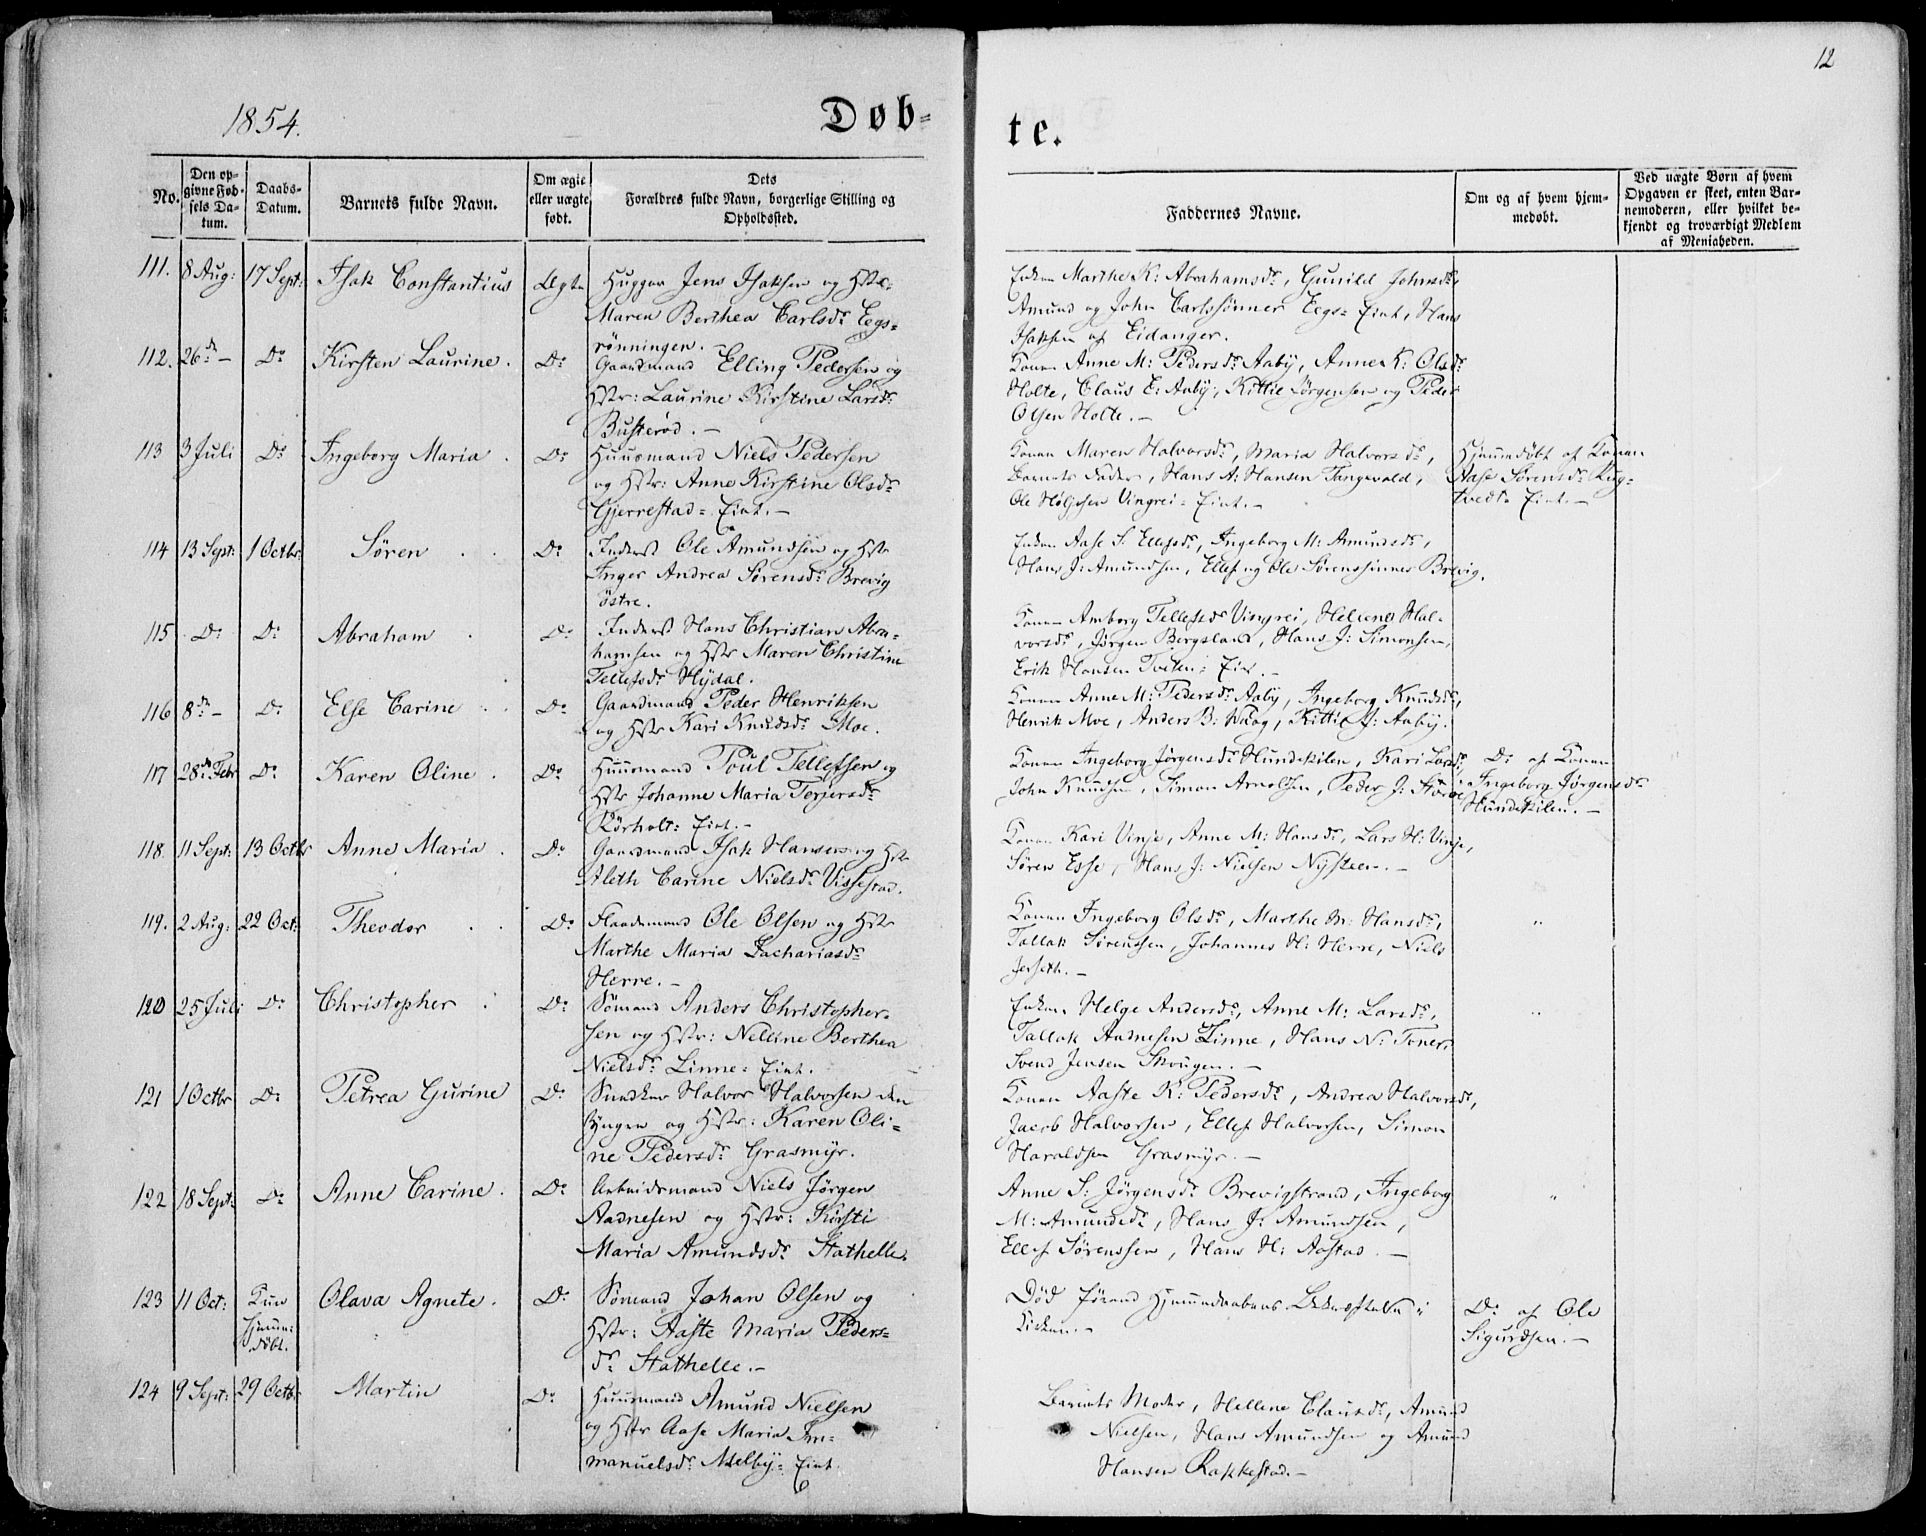 12
1854.
Døb-
te.
No.
Den op-
givne Fød-
sels Da-
tum.
Daabs-
Datum.
Barnets fulde Navn.
Om ægte
eller uægte
født.
Dets
Forældres fulde Navn, borgerlige Stilling og
Opholdssted.
Faddernes Navne.
Om og af hvem hjem-
medøbt.
Ved uægte Børn af hvem
Opgaven er skeet, enten Bar-
nemoderen, eller hvilket be-
kjendt og troværdigt Medlem
af Menigheden.
111. 8 Aug: 17 Sept: Isak Constantius Ægte
Jens Isaksen og Hstr:
Maren Berthea Carlsdr Eegs-
rönningen. -
Marthe K: Abrahamsdr, Gunild Johnsdr,
Amund og John Carlssönner Eegs- Eiet, Hans
Isaksen af Eidanger.
112. 26de - Do Kirsten Laurine. Do
Gaardmand Elling Pedersen og
Hstr: Laurine Kirstine Larsdr
Busterød. -
Konen Anne M: Pedersdr Aaby, Anne K: Olsdr
Holte, Claus E: Aaby, Kittil Jörgensen og Peder
Olsen Holte. -
113 3 Juli Do Ingeborg Maria. Do
Huusmand Niels Pedersen
og Hstr: Anne Kirstine Olsdr
Gjerrestad- Eiet. -
Konen Maren Halvorsdr, Maria Halvorsdr,
Barnets Fader, Hans A: Hansen Tangvald,
Ole Vingrei- Eiet. -
Hjemmedøbt af Konen
Aase Sörensdr
Eiet. -
114 13 Sept: 1 Octbr: Sören Do
Inderst Ole Amundsen og Hstr
Inger Andrea Sörensdr Brevig
östre.
Aase S. Ellefsdr, Ingeborg M: Amundsdr,
Hans J: Amundsen, Ellef og Ole Sörenssönner Brevig.
115 Do Do Abraham Do
Inderst Hans Christian Abra-
hamsen og Hstr Maren Christine
Tellefsdr Hydal.
Konen Amborg Tellefsdr Vingrei, Hellene Hal-
vorsdr, Jörgen Bergsland, Hans J: Simonsen,
Erik Hansen Tveten- Eiet. -
116 8de - Do Else Carine Do
Gaardmand Peder Henriksen
og Hstr Kari Knudsdr Moe.
Konen Anne M: Pedersdr Aaby, Ingeborg Knudsdr,
Henrik Moe, Anders B: Waag, Kittil J: Aaby.
117 28de Febr Do Karen Oline. Do
Huusmand Poul Tellefsen og
Hstr Johanne Maria Torjersdr
Rörholt- Eiet. -
Konen Ingeborg Jörgensdr Hundekilen, Kari Larsdr,
John Knudsen, Simon Arnoldsen, Peder J:
Do af Konen
Ingeborg Jörgensdr
Hundekilen. -
118. 11 Sept: 13 Octbr Anne Maria. Do
Gaardmand Isak Hansen og Hstr
Aleth Carine Nielsdr Vissestad.
Konen Kari Vinje, Anne M: Hansdr, Lars H: Vinje,
Sören Esse, Hans J: Nielsen Nysteen. -
119. 2 Aug: 22 Oct: Theodor Do
Ole Olsen og Hstr
Marthe Maria Zachariasdr
Herre. -
Konen Ingeborg Olsdr, Marthe M: Hansdr,
Tallak Sörenssen, Johannes H: Herre, Niels
Jerseth. -
"
120 25 Juli Do Christopher Do
Sömand Anders Christopher-
sen og Hstr: Nelline Berthea
Nielsdr Linne- Eiet.
Helge Andersdr, Anne M: Larsdr,
Tallak Aadnesen Linne, Hans N:
Svend Jensen Skougen. -
"
121 1 Octbr Do Petrea Gurine Do
Snedker Halvor Halvorsen den
yngre og Hstr: Karen Oli-
ne Pedersdr Grasmyr.
Konen Aaste K: Pedersdr, Andrea Halvorsdr,
Jacob Halvorsen, Ellef Halvorsen, Simon
Haraldsen Grasmyr. -
122 18 Sept: Do Anne Carine. Do
Arbeidsmand Niels Jörgen
Aadnesen og Hstr: Kirsti
Maria Amundsdr Stathelle.
Anne S: Jörgensdr Brevigstrand, Ingeborg
M: Amundsdr, Hans J: Amundsen,
Ellef Sörenssen, Hans H: Aastad. -
"
123 11 Oct: Kun
hjemme-
døbt.
Olava Agnete. Do
Sömand Johan Olsen og
Hstr: Aaste Maria Peders-
dr Stathelle. -
Död förend Hjemmedaabens Bekræftelse i
Kirken. -
Do af Ole
Sigurdsen. -
124 9 Sept: 29 Octbr Martin Do
Huusmand Amund Nielsen
og Hstr Aase Maria Im-
manuelsdr Melby- Eiet.
Barnets Moder, Hellene Clausdr, Amund
Nielsen, Hans Amundsen og Amund
Hansen Rakkestad. -